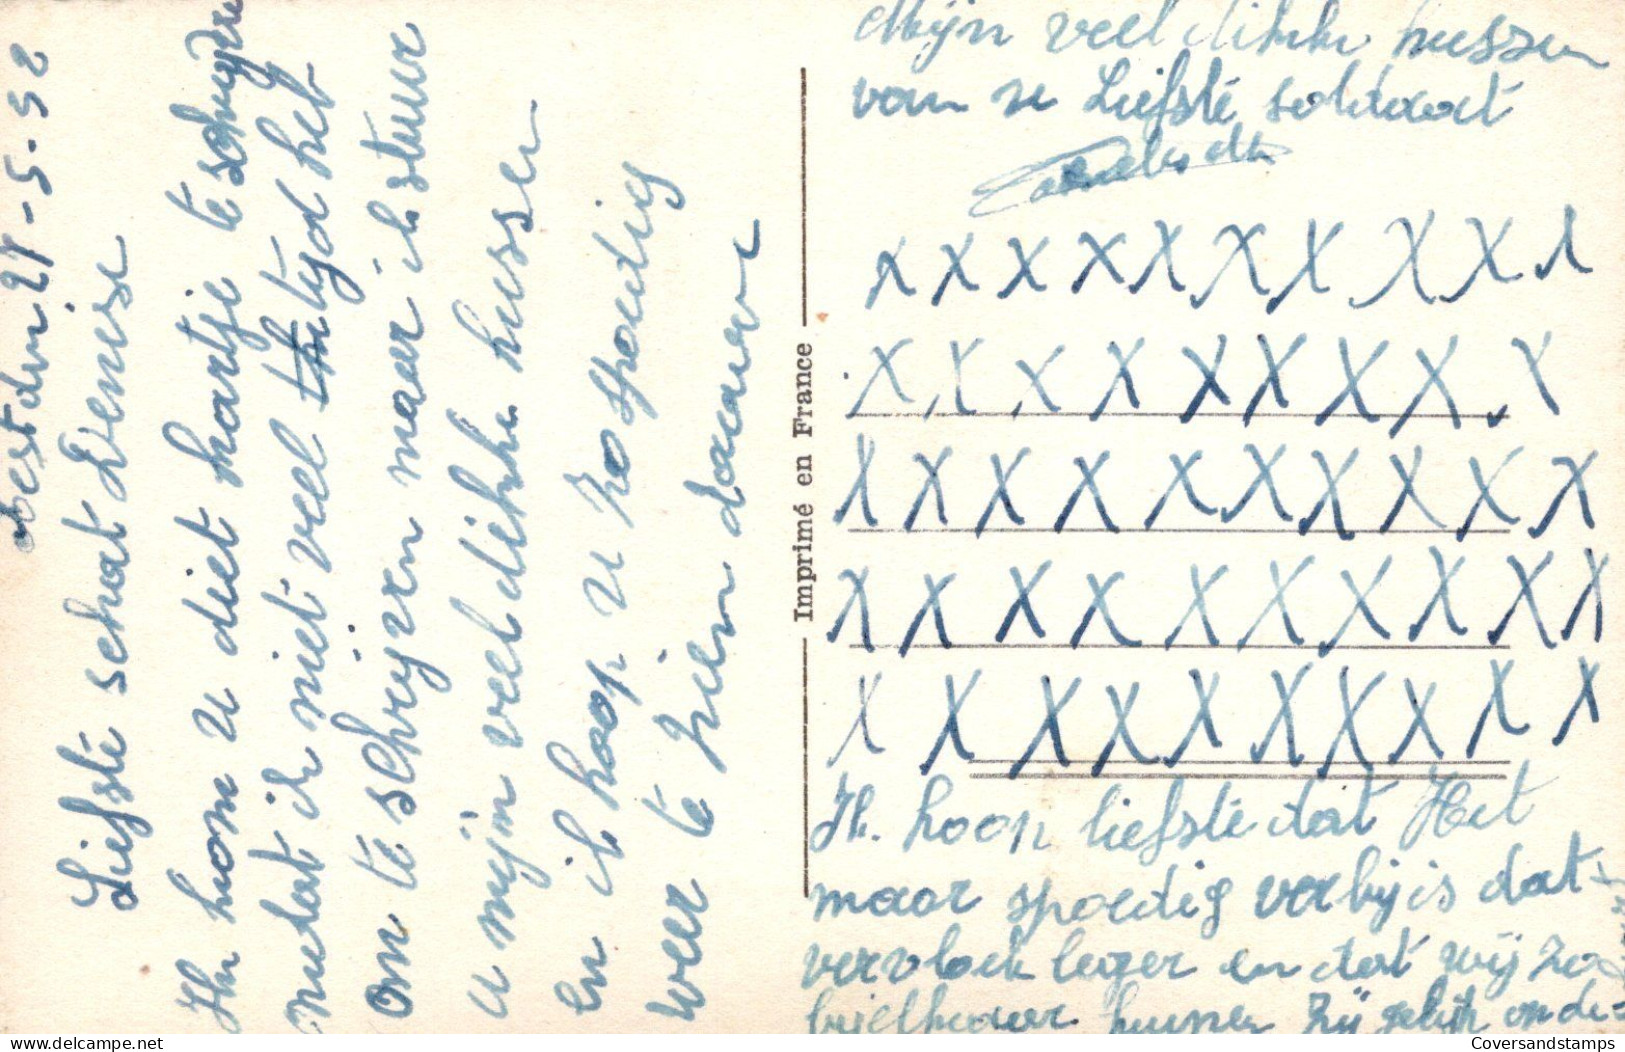 21-5-52
Liefste schat Denise
Ik kom u diet hartje te schrijven
metat ik niet veel tijd heb
om te schrijven maar ik stuur
u mijn veel dikke kussen
en ik hoop u zo spoedig
weer te zien dauwr
Imprimé en France
Mijn veel dikke kussen
van u Liefste soldaat
X X X X X X X X X X
X X X X X X X X X
X X X X X X X X X X
X X X X X X X X X X
X X X X X X X X X X
Ik hoop liefste dat Het
maar spoedig verbij is dat
vervloek leger en dat wij zo
bij elkaar kunnen zij gelijk onde-
Coversandstamps